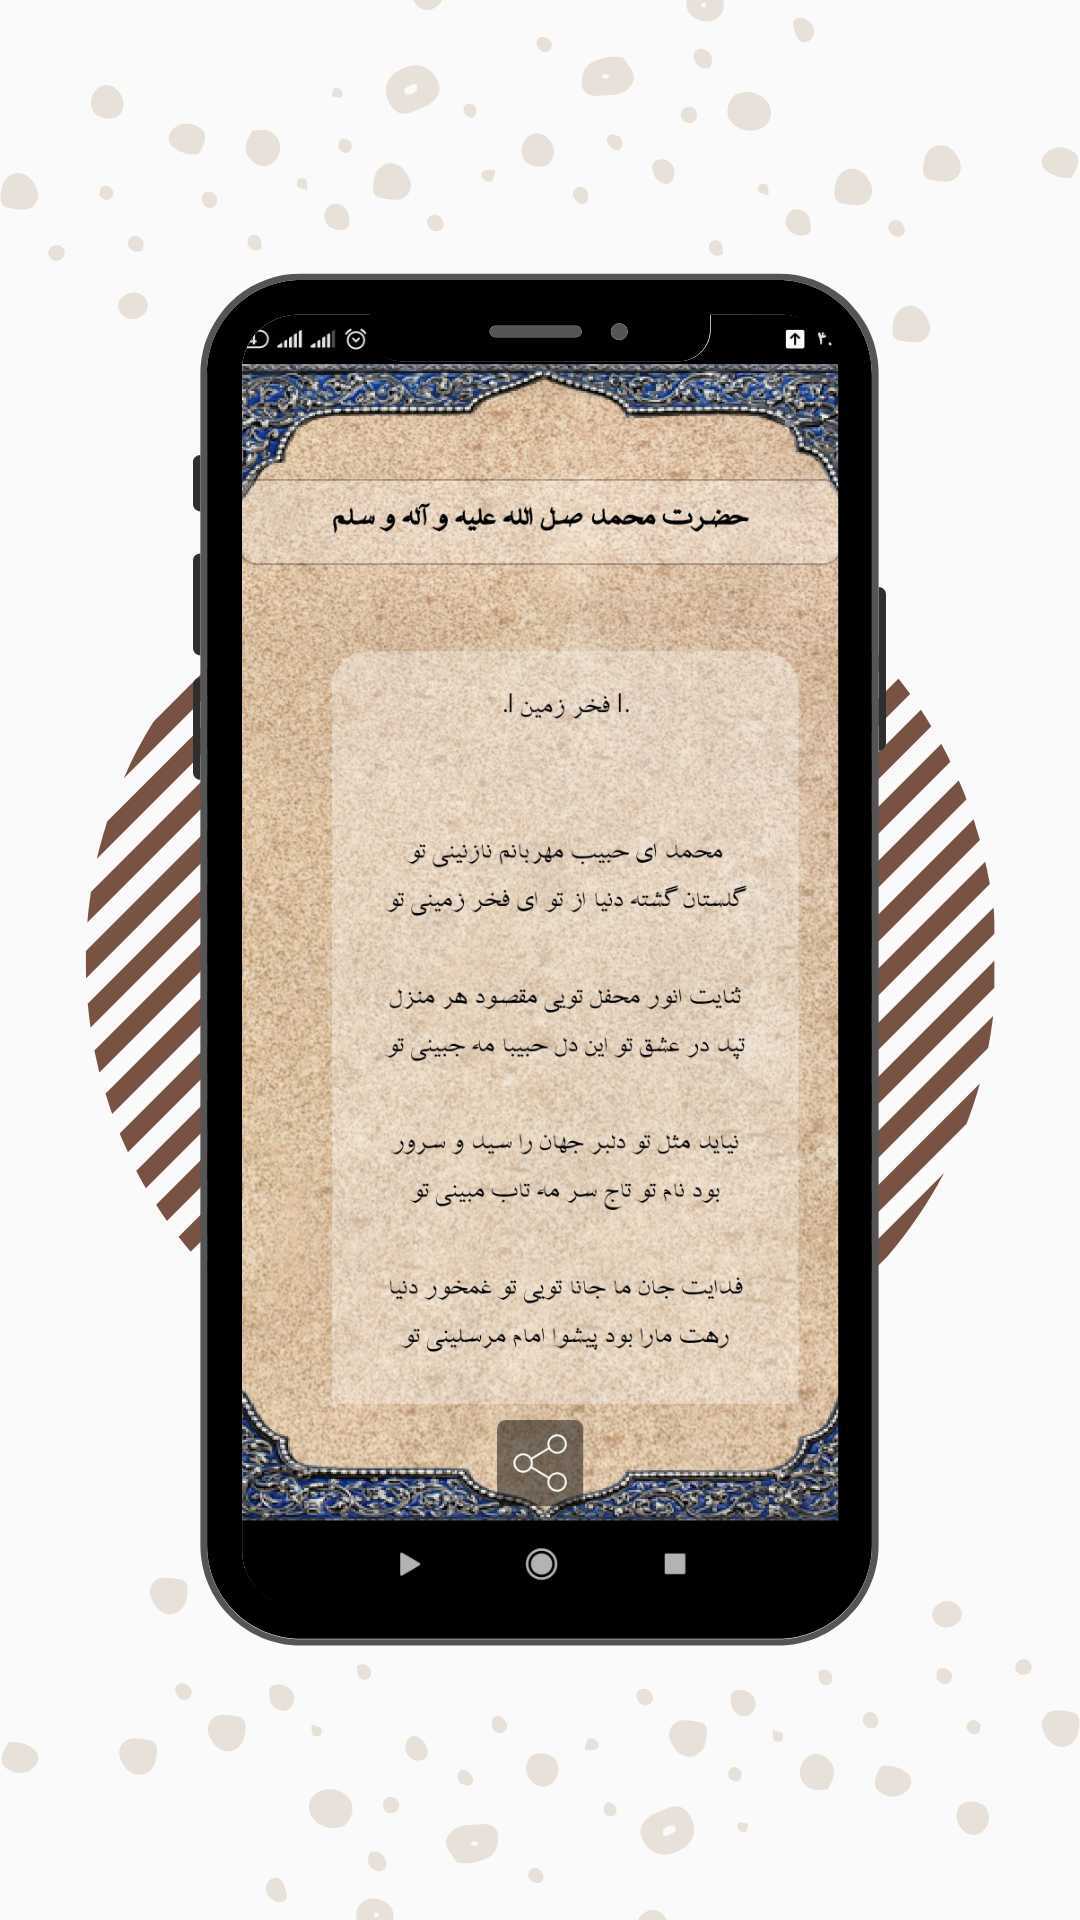 ۴۰
حضرت محمد صل الله علیه و آله و سلم
.ا فخر زمین ا.
محمد ای حبیب مهربانم نازنینی تو
گلستان گشته دنیا از تو ای فخر زمینی تو
ثنایت انور محفل تویی مقصود هر منزل
تپد در عشق تو این دل حبیبا مه جبینی تو
نیاید مثل تو دلبر جهان را سید و سرور
بود نام تو تاج سر مه تاب مبینی تو
فدایت جان ما جانا تویی تو غمخور دنیا
رهت مارا بود پیشوا امام مرسلینی تو